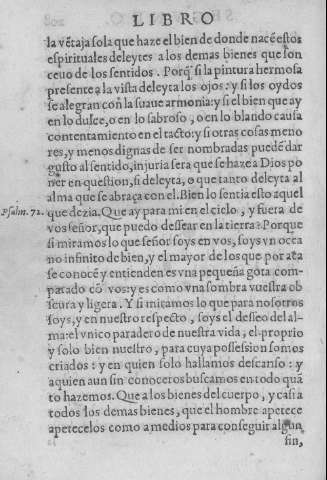 LIBRO
la vẽtaja sola que haze el bien de donde nacẽ estos
espirituales deleytes a los demas bienes que son
ceuo de los sentidos. Porq̃ si la pintura hermosa
presente a la vista deleyta los ojos: y si los oydos
se alegran cõ la suaue armonia: y si el bien que ay
en lo dulce, o en lo sabroso, o en lo blando causa
contentamiento en el tacto: y si otras cosas meno
res, y menos dignas de ser nombradas puedẽ dar
gusto al sentido, injuria sera que se haze a Dios po
ner en question, si deleyta, o que tanto deleyta al
alma que se abraça con el. Bien lo sentia esto aquel
Psalm. 72. que dezia. Que ay para mi en el cielo, y fuera de
vos señor, que puedo dessear en la tierra? Porque
si miramos lo que señor soys en vos, soys vn occa
no infinito de bien, y el mayor de los que por aca
se conocẽ y entienden es vna pequeña gota com-
parado cõ vos: y es como vna sombra vuestra ob
scura y ligera. Y si miramos lo que para nosotros
soys, y en nuestro respecto, soys el desseo del al-
ma: el vnico paradero de nuestra vida, el proprio
y solo bien nuestro, para cuya possession somos
criados: y en quien solo hallamos descanso: y
a quien aun sin conoceros buscamos en todo quã
to hazemos. Que a los bienes del cuerpo, y casi a
todos los demas bienes, que el hombre apetece
apetecelos como a medios para conseguir algun
fin,